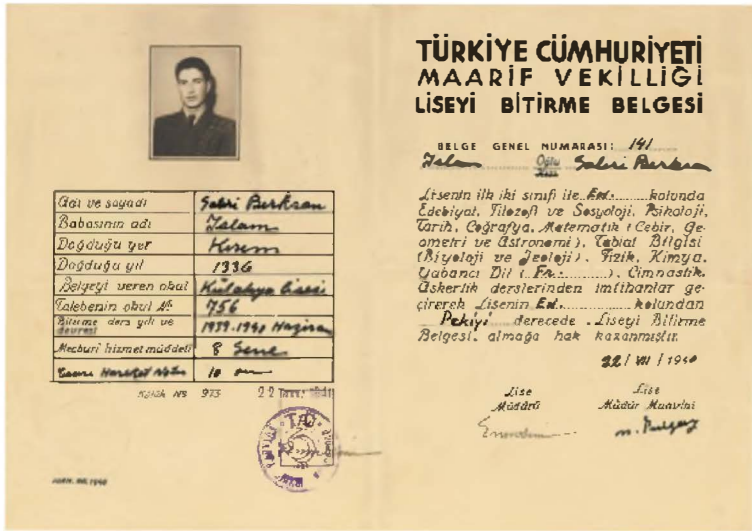 Adı ve soyadı Sabri Berksan
Babasının adı Islam
Doğduğu yer Kırım
Doğduğu yıl 1336
Belgeyi veren okul Kütahya Lisesi
Talebenin okul No 756
Bitirme ders yılı ve devresi 1939-1940 Haziran
Mecburi hizmet müddeti 8 Sene
Hareket Notu 10 on
Kütük No 973 22
TÜRKİYE CÜMHURİYETİ
MAARİF VEKİLLİĞİ
LİSEYİ BİTİRME BELGESİ
BELGE GENEL NUMARASI: 141
Islam Oğlu Sabri Berksan
Lisenin ilk iki sınıfı ile Ed. kolunda
Edebiyat, Filozofi ve Sosyoloji, Psikoloji,
Tarih, Coğrafya, Matematik (Cebir, Ge-
ometri ve Astronomi), Tabiat Bilgisi
(Biyoloji ve Jeoloji), Fizik, Kimya,
Yabancı Dil (Fr.), Cimnastik,
Askerlik derslerinden imtihanlar ge-
çirerek Lisenin Ed. kolundan
Pekiyi derecede Liseyi Bitirme
Belgesi almağa hak kazanmıştır.
22/VII/1940
Lise Müdürü
Lise Müdür Muavini